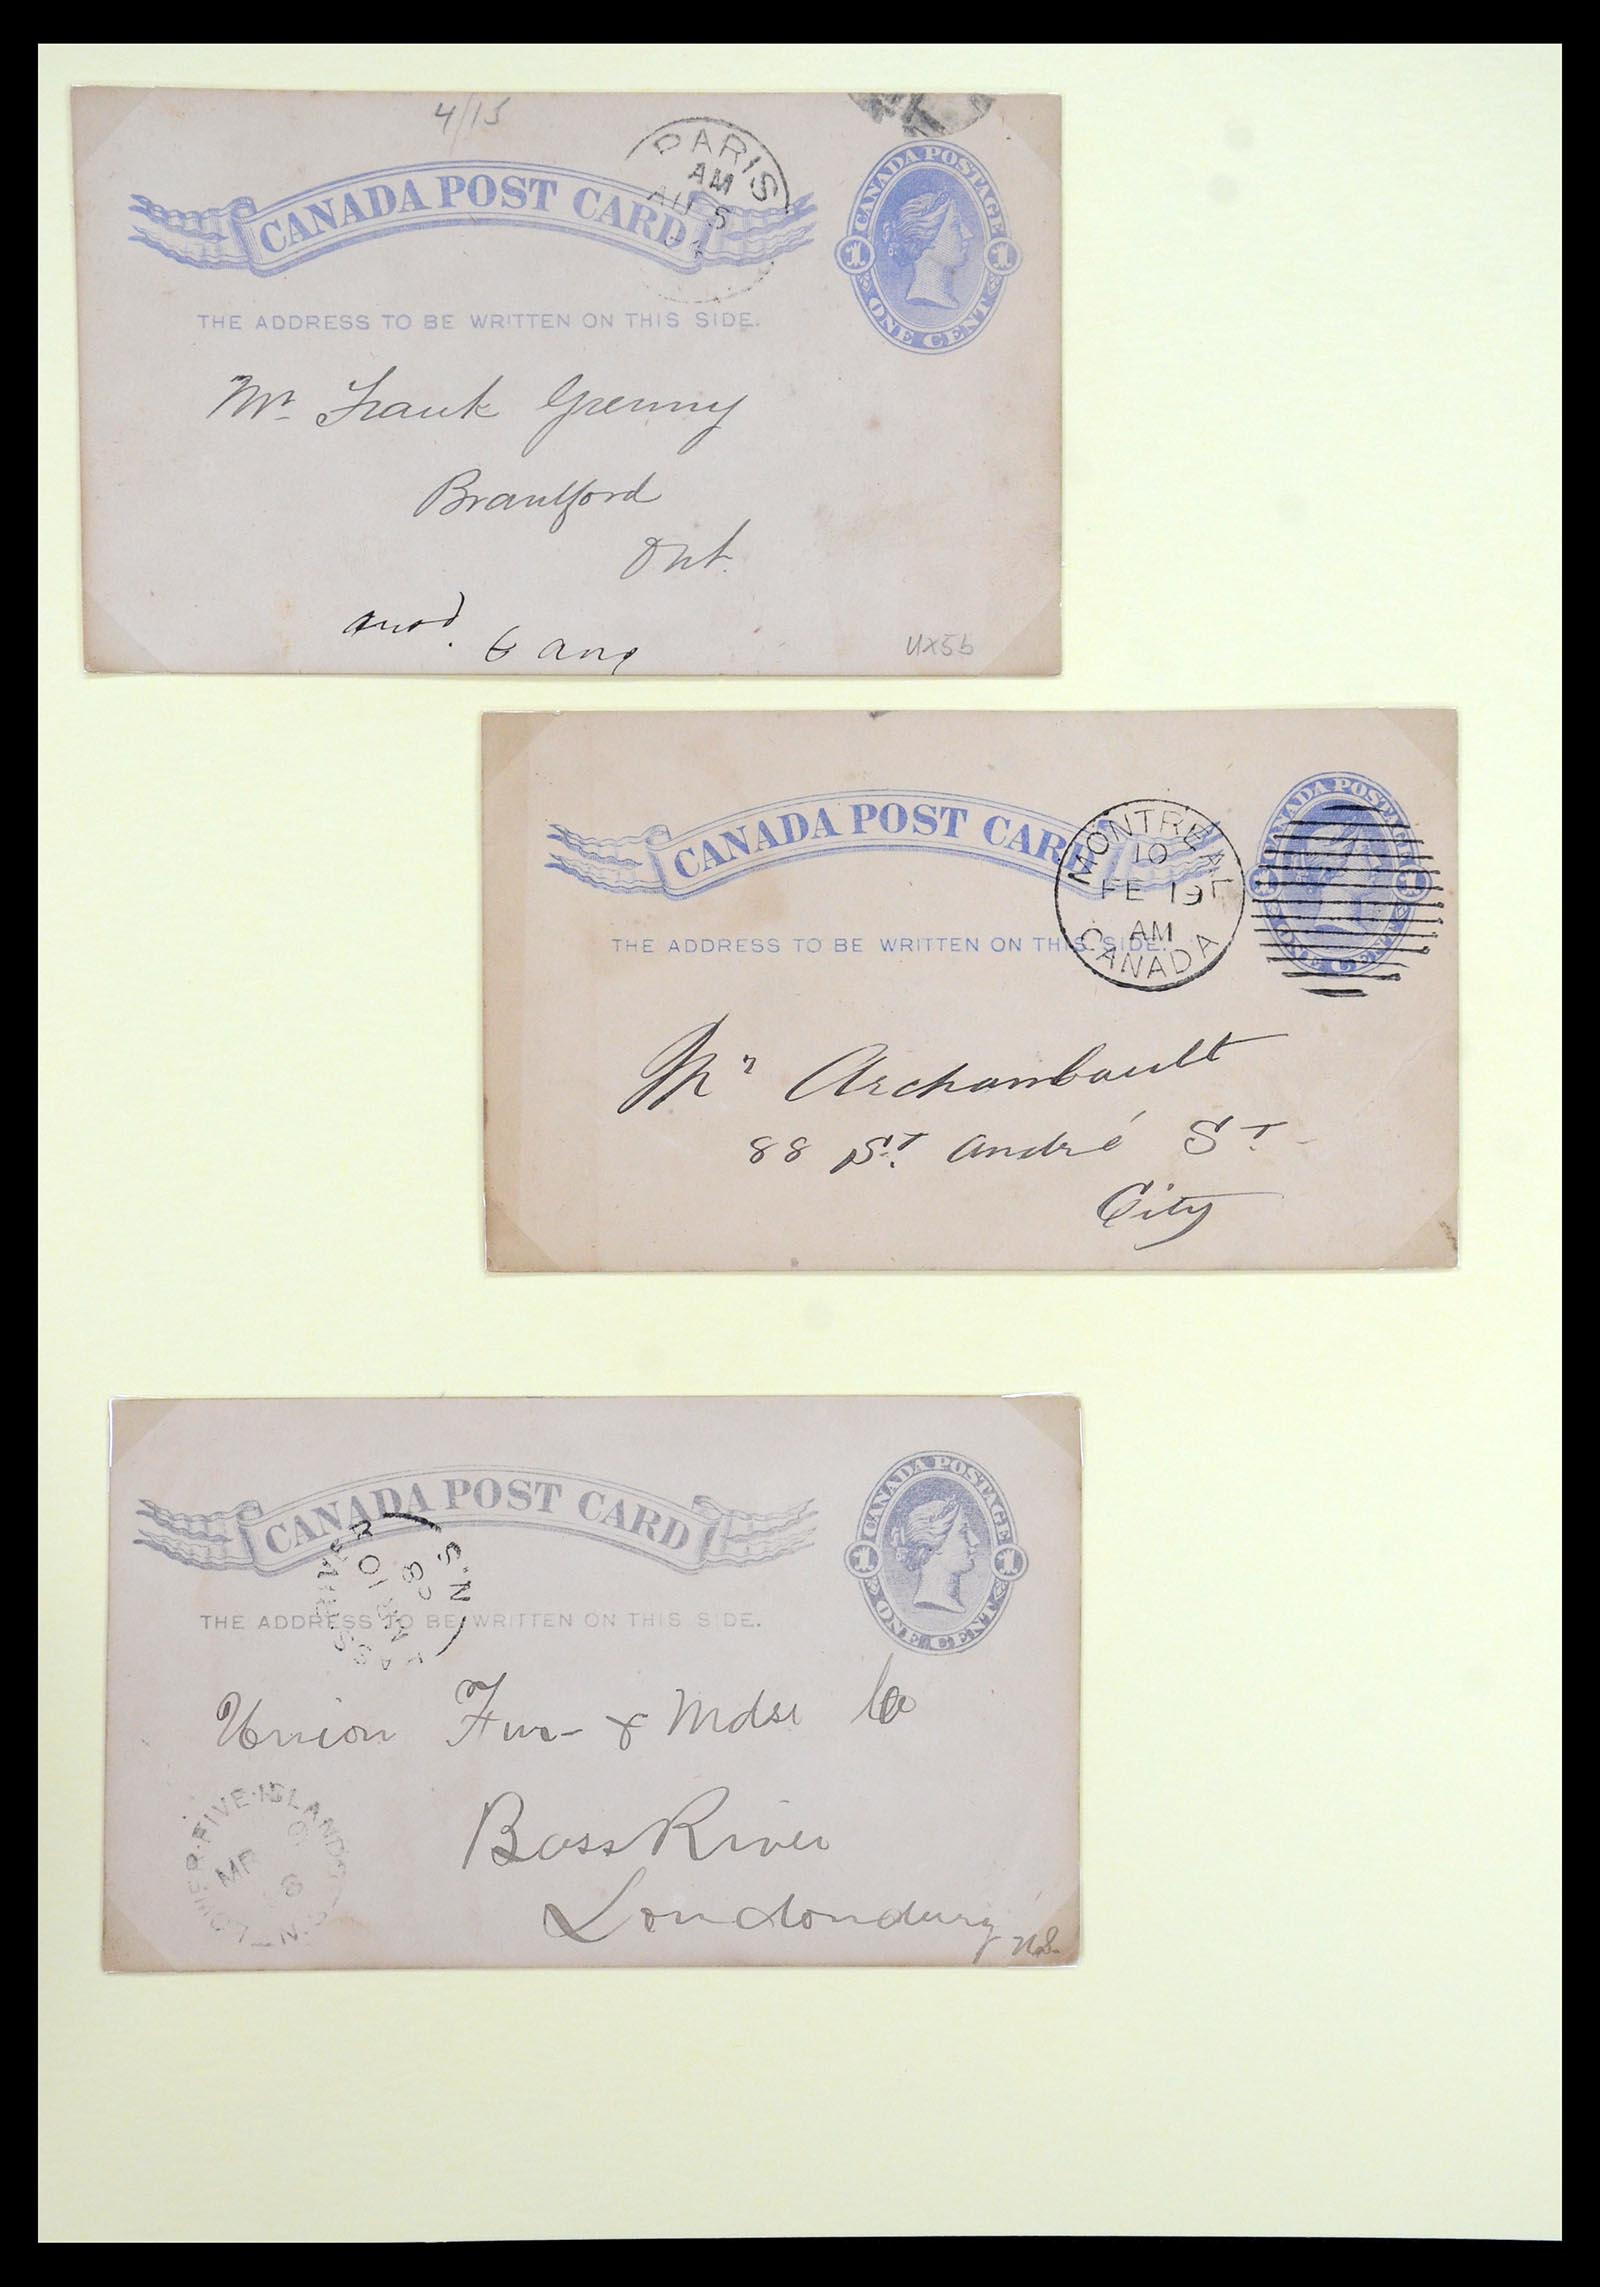 4/15
PARIS
AM
AU 5
CANADA POST CARD
CANADA POSTAGE
1 1
ONE CENT
THE ADDRESS TO BE WRITTEN ON THIS SIDE.
Mr Frank Grenny
Brantford
Ont.
6 Aug
UX5b
CANADA POST CARD
MONTREAL
10
FE 19
AM
CANADA
CANADA POSTAGE
ONE CENT
THE ADDRESS TO BE WRITTEN ON THIS SIDE.
Mr Archambault
88 St. André St.
City
CANADA POST CARD
CANADA POSTAGE
1 1
ONE CENT
N.S
THE ADDRESS TO BE WRITTEN ON THIS SIDE.
Union Fur- & Mdse Co
LOWER FIVE ISLANDS N.S
MR 8
Bass River
Londonderry N.S.